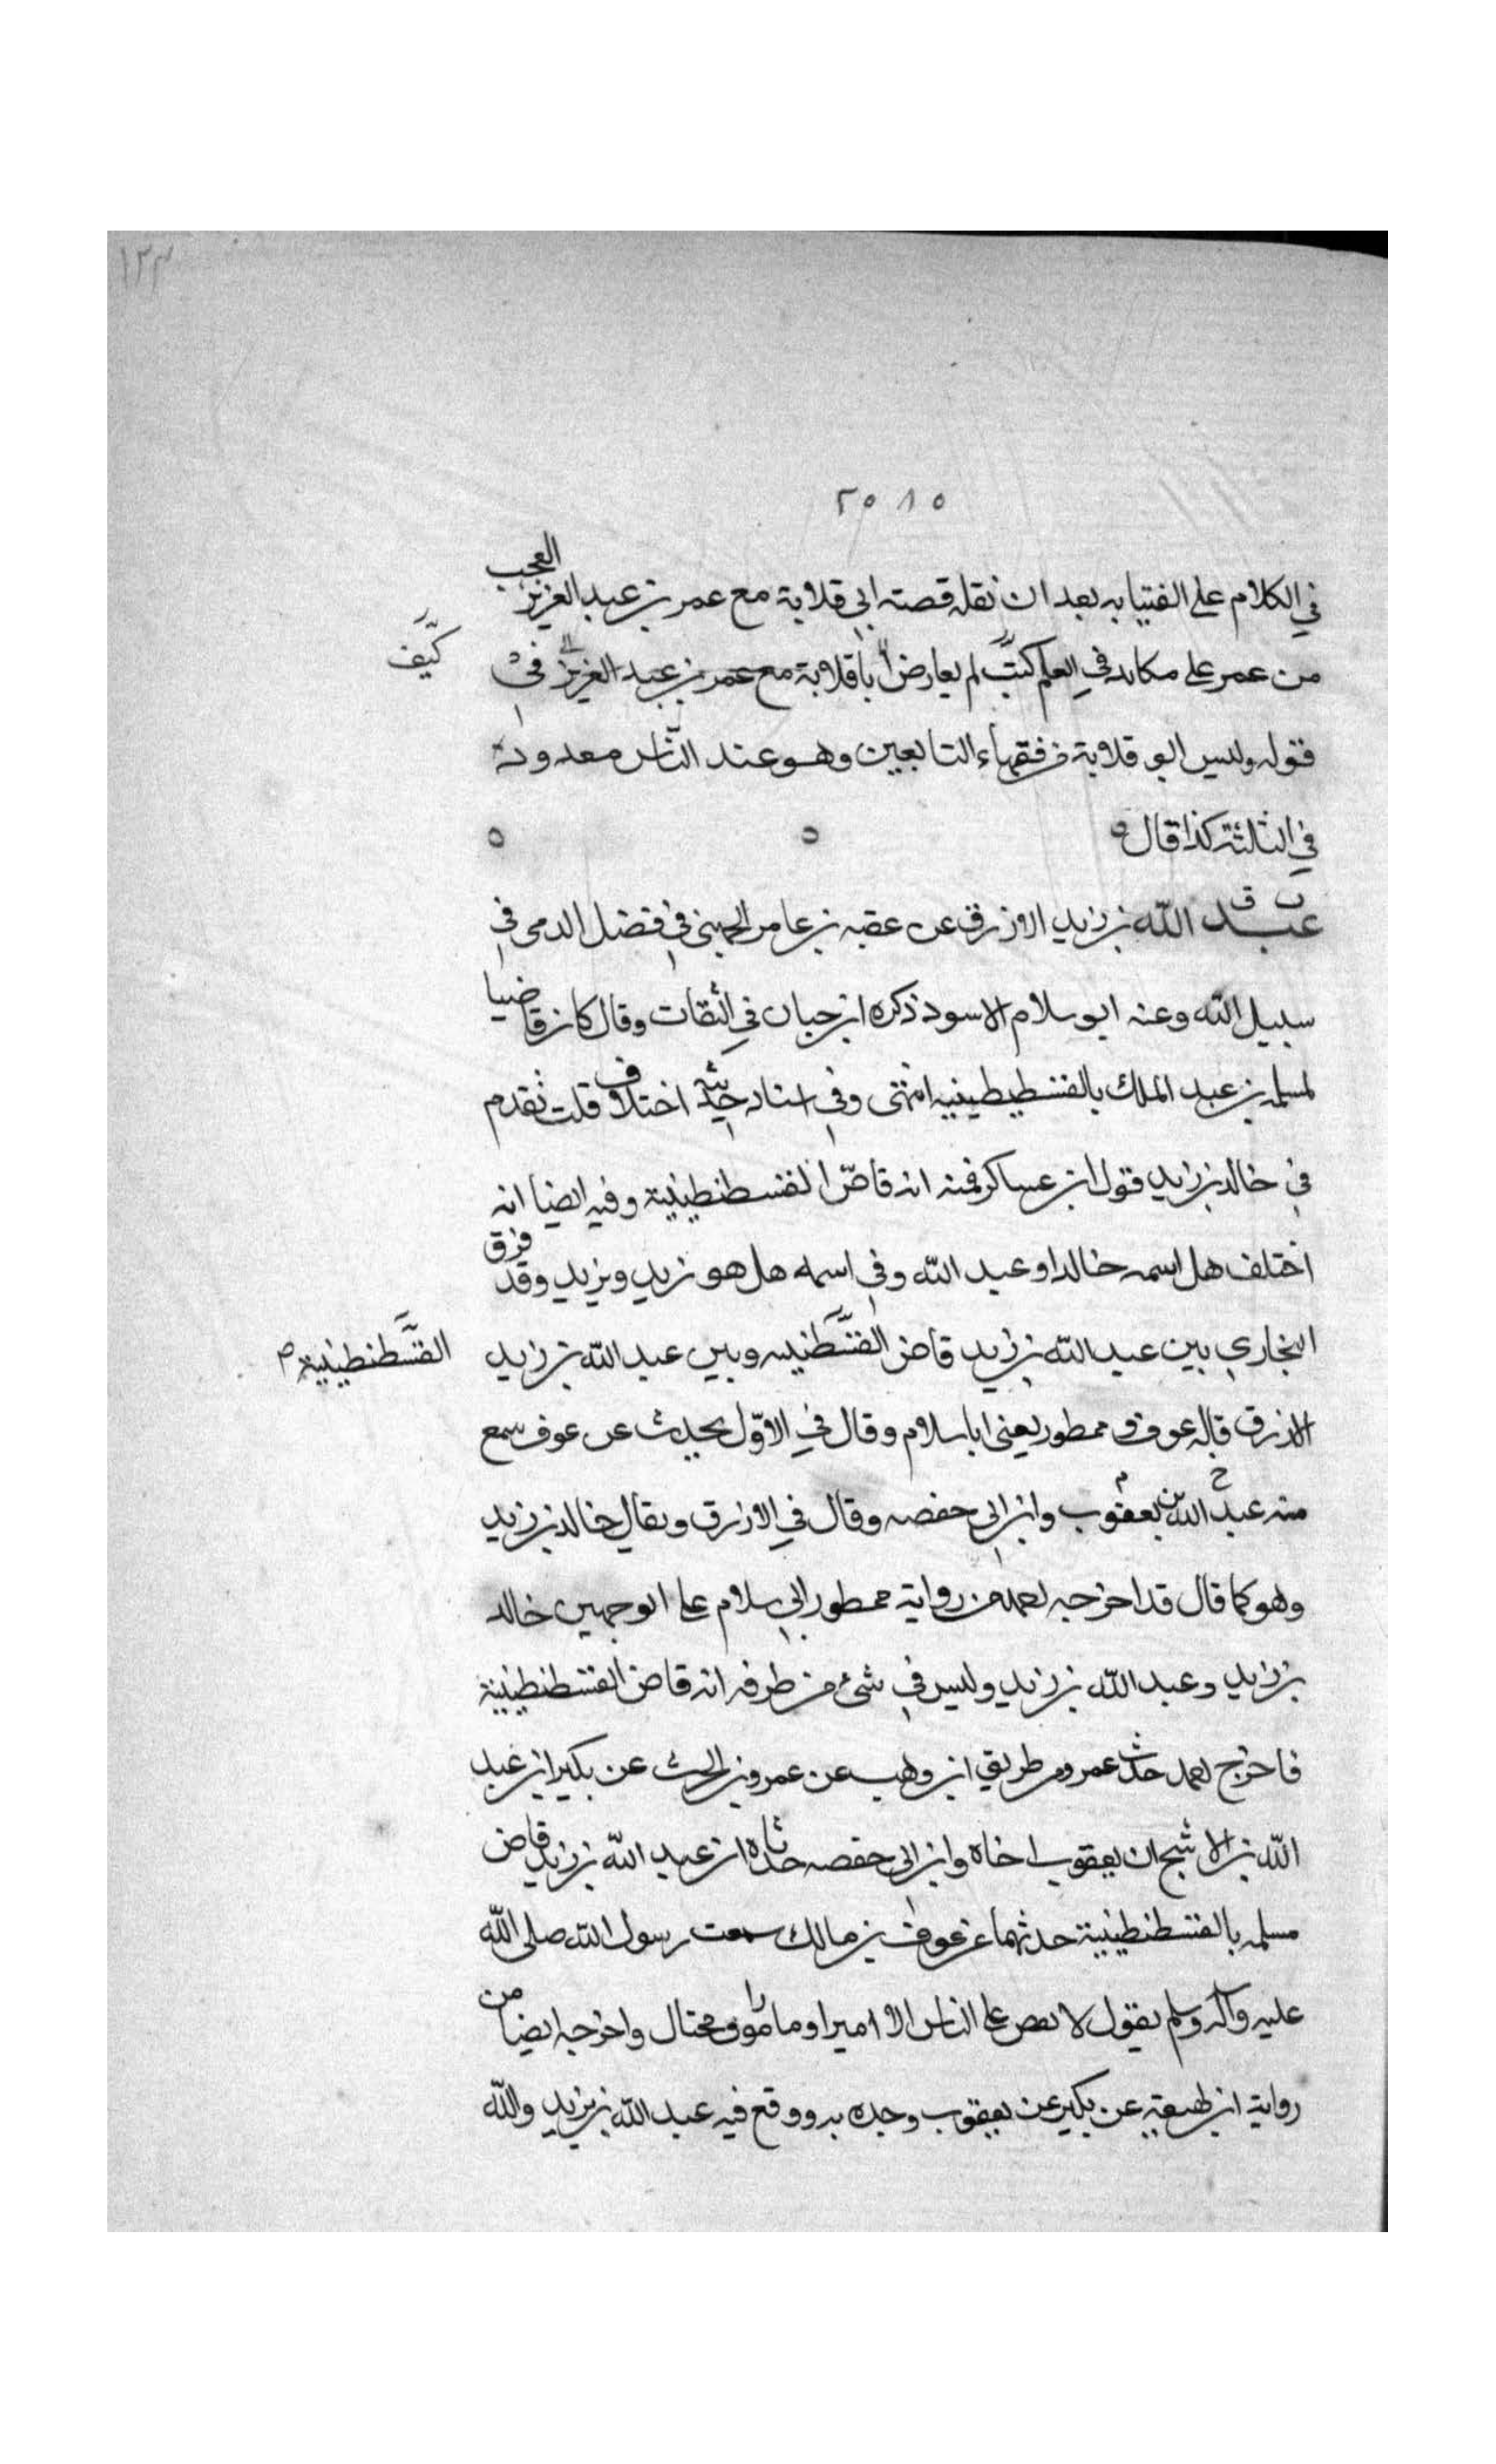 ١٣٣
٢٥١٥
في الكلام على الفتيا به بعد ان نقله قصته ابي قلابة مع عمر بن عبد العزيز العجب
من عمر على مكانه في العلم كتب لم يعارض ابا قلابة مع عمر بن عبد العزيز في
كيف
قوله وليس ابو قلابة من فقهاء التابعين وهو عند الناس معدود
في الثالثة كذا قال
عبد الله بن زيد الازرق عن عقبه بن عامر الجهني في فضل الرمى في
سبيل الله وعنه ابو سلام الاسود ذكره ابن حبان في الثقات وقال كان قاضيا
لمسلمه بن عبد الملك بالقسطيطينيه انتهى وفي اسناد حديثه اختلاف قلت تقدم
في خالد بن زيد قول ابن عساكر فمنه انه قاص القسطنطينية وفيه ايضا انه
اختلف هل اسمه خالد او عبد الله وفي اسمه هل هو زيد ويزيد وقد فرق
البخاري بين عبد الله بن زيد قاض القسطنيه وبين عبد الله بن زيد
القسطنطينية م
الازرق قاله عوف و ممطور يعنى ابا سلام وقال في الاوّل يحدث عن عوف سمع
منه عبد الله بن يعقوب وابن ابى حفصه وقال في الازرق ويقال خالد بن زيد
وهو كما قال قد اخرجه من رواية ممطور ابي سلام على الوجهين خالد
بن زيد وعبد الله بن زيد وليس في شئ من طرقه انه قاض القسطنطينية
فاخرج حدث عمرو من طريق ابن وهب عن عمرو بن الحرث عن بكير ابن عبد
الله بن الاشج ان يعقوب اخاه وابن ابى حفصه حدثاه ان عبد الله بن زيد قاض
مسلمه بالقسطنطينية حدثهما عن عوف بن مالك سمعت رسول الله صلى الله
عليه وآله وسلم يقول لا يقص على الناس الا امير او مامور او محتال واخرجه ايضا من
رواية ابن لهيعة عن بكير عن يعقوب وحده به ووقع فيه عبد الله بن يزيد والله